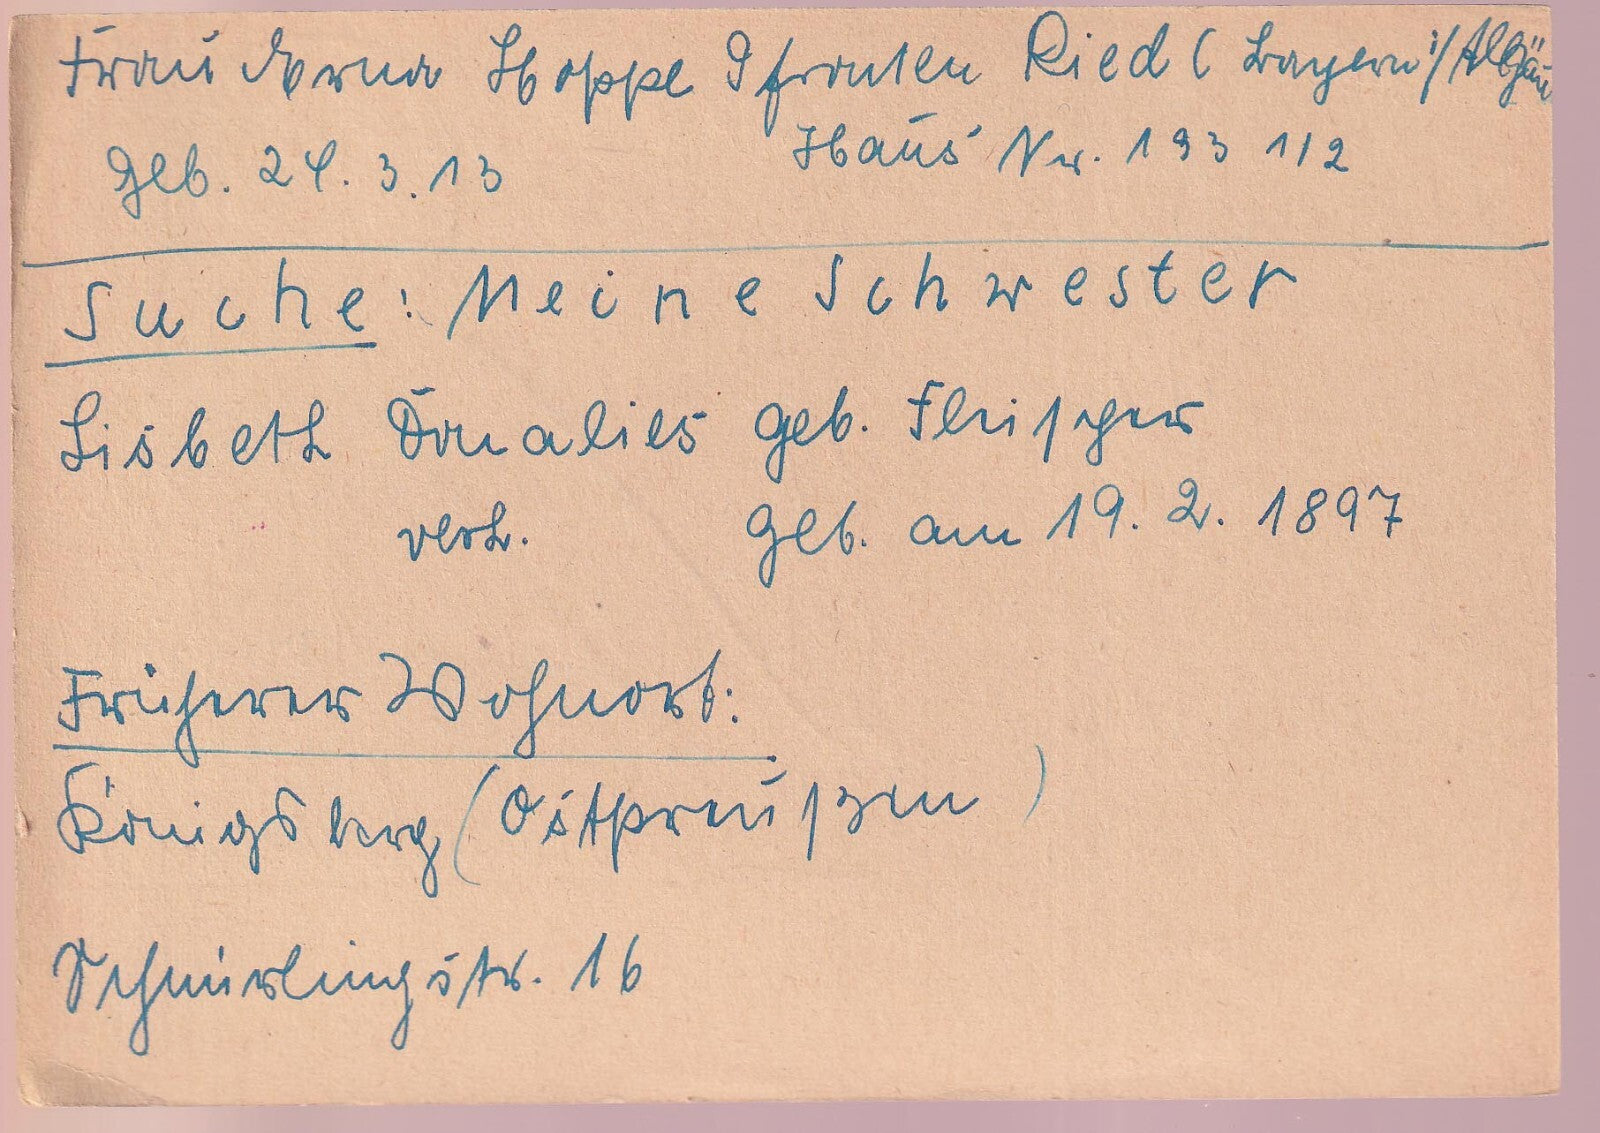 Frau Erna Hoppe Pfronten Ried (Bayern i/Allgäu
geb. 24. 3. 13 Haus Nr. 193 1/2
Suche: Meine Schwester
Lisbeth Donalies geb. Fleischer
verh. geb. am 19. 2. 1897
Früherer Wohnort:
Königsberg (Ostpreußen)
Schnürlingstr. 16